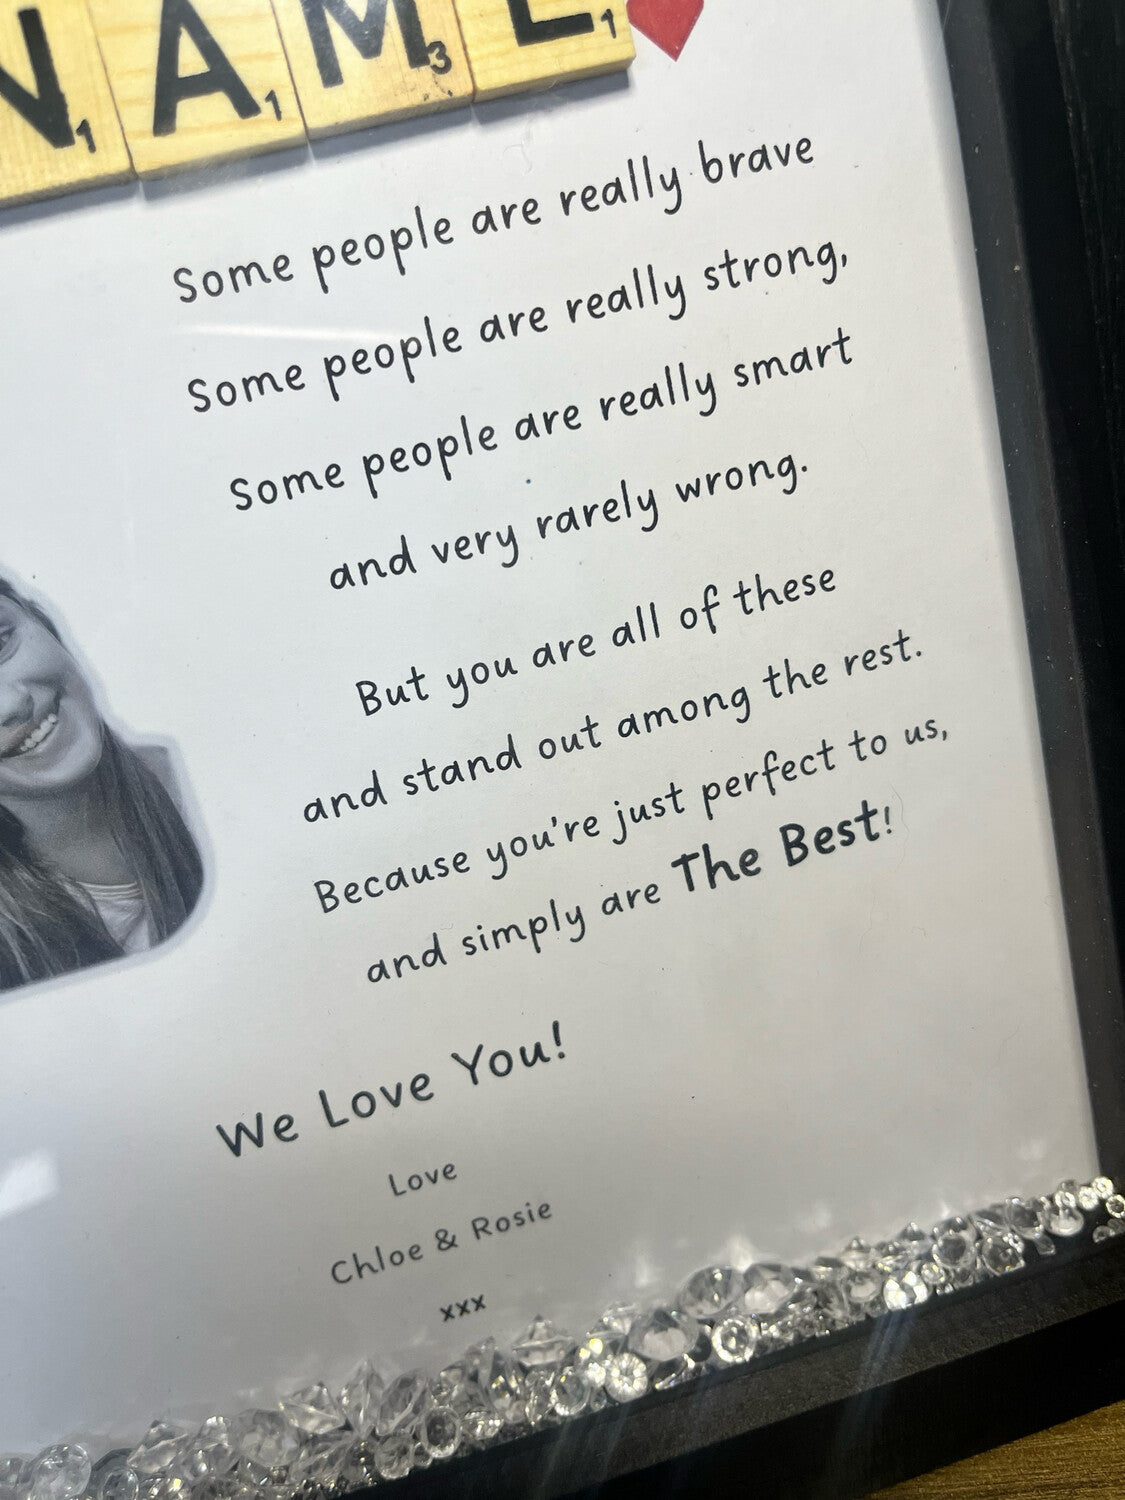 NAME
1 1 3 1
Some people are really brave
Some people are really strong,
Some people are really smart
and very rarely wrong.
But you are all of these
and stand out among the rest.
Because you're just perfect to us,
and simply are The Best!
We Love You!
Love
Chloe & Rosie
xxx